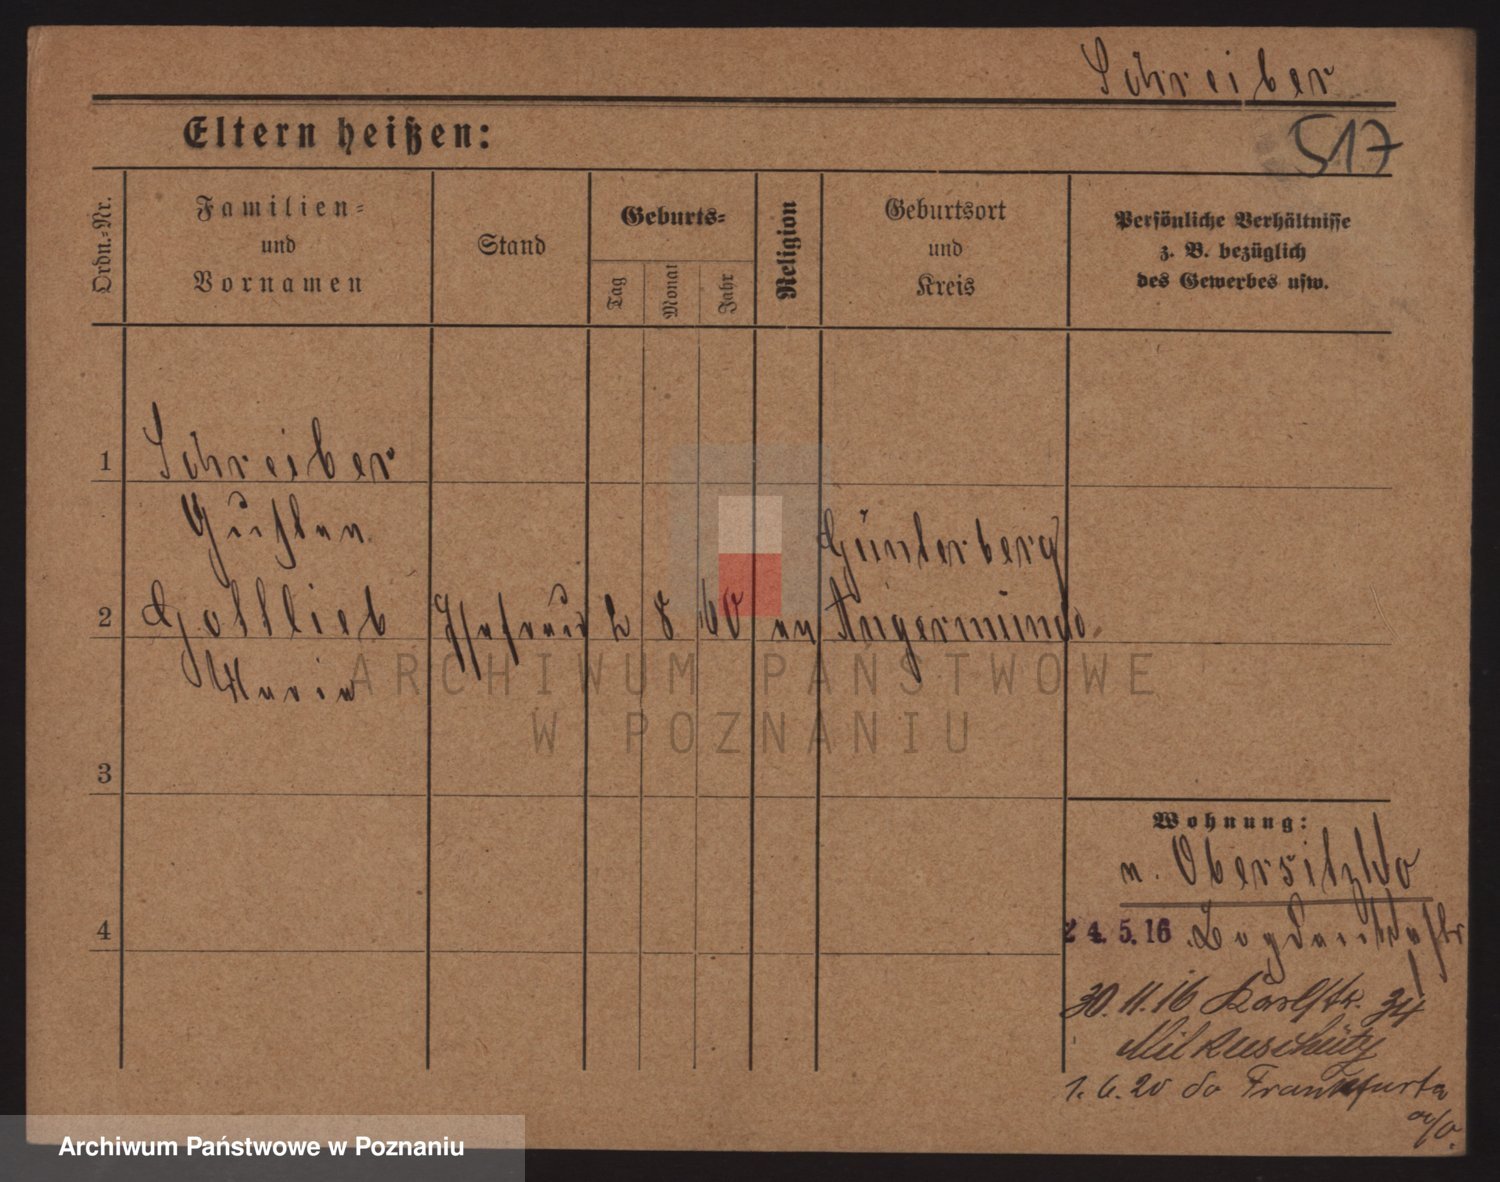 Schreiber
517
Eltern heißen:
Ordn.-Nr.
Familien-
und
Vornamen
Stand
Geburts-
Tag
Monat
Jahr
Religion
Geburtsort
und
Kreis
Persönliche Verhältnisse
z. B. bezüglich
des Gewerbes usw.
1
Schreiber
2
Gottlieb
Maria
Ehefrau
2 8 60
Günterberg
Angermünde
3
4
ARCHIWUM PAŃSTWOWE
W POZNANIU
Wohnung:
n. Obersitzko
24. 5. 16
30. 11. 16 Karlstr. 34
1. 6. 20 Frankfurt a
a/O.
Archiwum Państwowe w Poznaniu